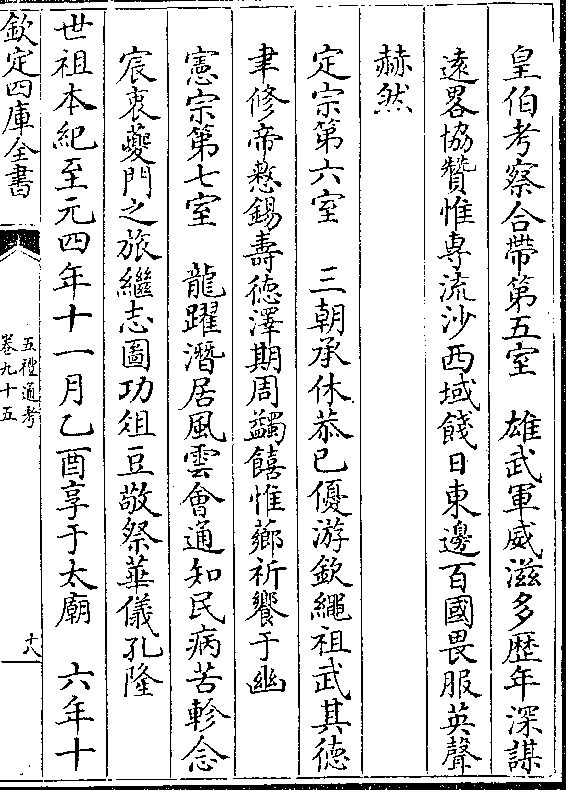 皇伯考察合帶第五室　雄武軍威滋多歴年深謀
逺畧協贊惟専流沙西域餞日東邊百國畏服英聲
赫然
定宗第六室　三朝承休恭已優游欽繩祖武其徳
聿修帝愗錫壽徳澤期周蠲饎惟薌祈饗于幽
憲宗第七室　龍躍潛居風雲會通知民病苦軫念
宸衷夔門之旅繼志圖功俎豆敬祭華儀孔隆
世祖本紀至元四年十一月乙酉享于太廟　六年十
欽定四庫全書
五禮通考
卷九十五
十八